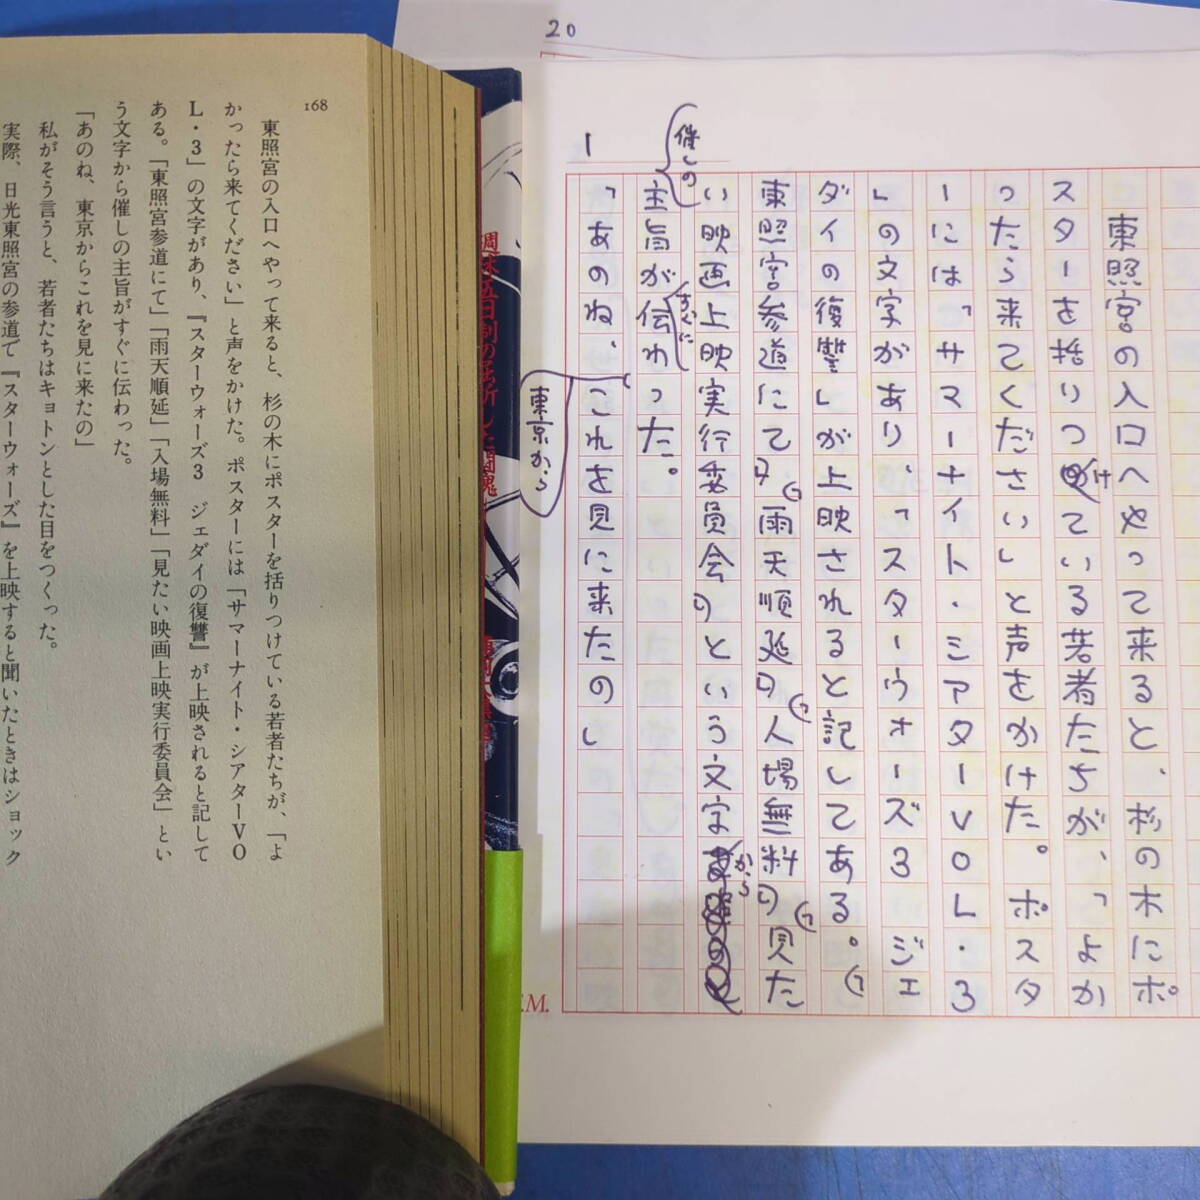 20
1
東照宮の入口へやって来ると、杉の木にポ
スターを括りつけている若者たちが、「よか
ったら来てください」と声をかけた。ポスタ
ーには「サマーナイト・シアターVOL・3
」の文字があり、「スターウォーズ3 ジェ
ダイの復讐」が上映されると記してある。「
東照宮参道にて」「雨天順延」「入場無料」「見た
い映画上映実行委員会」という文字から
催しの
主旨がすぐに伝わった。
「あのね、東京からこれを見に来たの」
F.M.
168
東照宮の入口へやって来ると、杉の木にポスターを括りつけている若者たちが、「よ
かったら来てください」と声をかけた。ポスターには「サマーナイト・シアターVO
L・3」の文字があり、『スターウォーズ3 ジェダイの復讐』が上映されると記して
ある。「東照宮参道にて」「雨天順延」「入場無料」「見たい映画上映実行委員会」とい
う文字から催しの主旨がすぐに伝わった。
「あのね、東京からこれを見に来たの」
私がそう言うと、若者たちはキョトンとした目をつくった。
実際、日光東照宮の参道で『スターウォーズ』を上映すると聞いたときはショック
週休五日制の屈折した